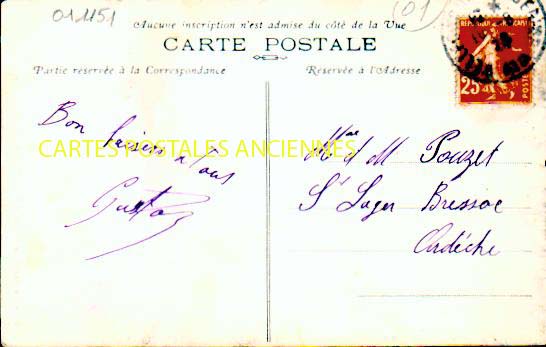 011451
(01)
Aucune inscription n'est admise du côté de la Vue
CARTE POSTALE
Partie réservée à la Correspondance
Réservée à l'Adresse
REPUBLIQUE FRANCAISE
25
POSTES
Bon baisers a tous
CARTES POSTALES ANCIENNES
Gustave
Mme et M Pouzet
St Lager Bressac
Ardèche